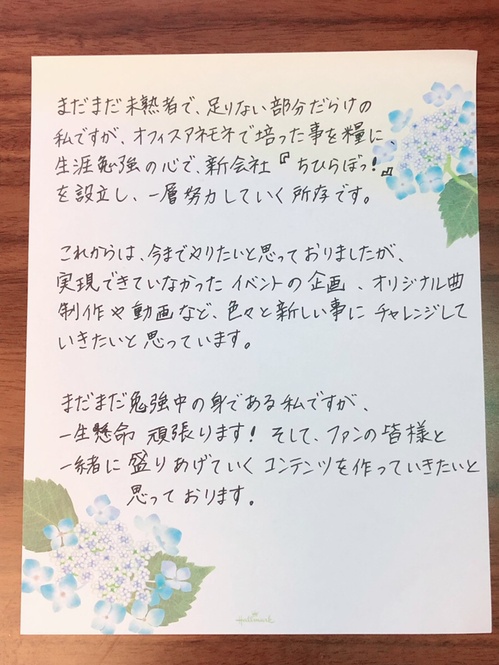 まだまだ未熟者で、足りない部分だらけの
私ですが、オフィスアネモネで培った事を糧に
生涯勉強の心で、新会社『ちひらぼっ!』
を設立し、一層努力していく所存です。
これからは、今までやりたいと思っておりましたが、
実現できていなかったイベントの企画、オリジナル曲
制作や動画など、色々と新しい事にチャレンジして
いきたいと思っています。
まだまだ勉強中の身である私ですが、
一生懸命頑張ります!そして、ファンの皆様と
一緒に盛りあげていくコンテンツを作っていきたいと
思っております。
Hallmark